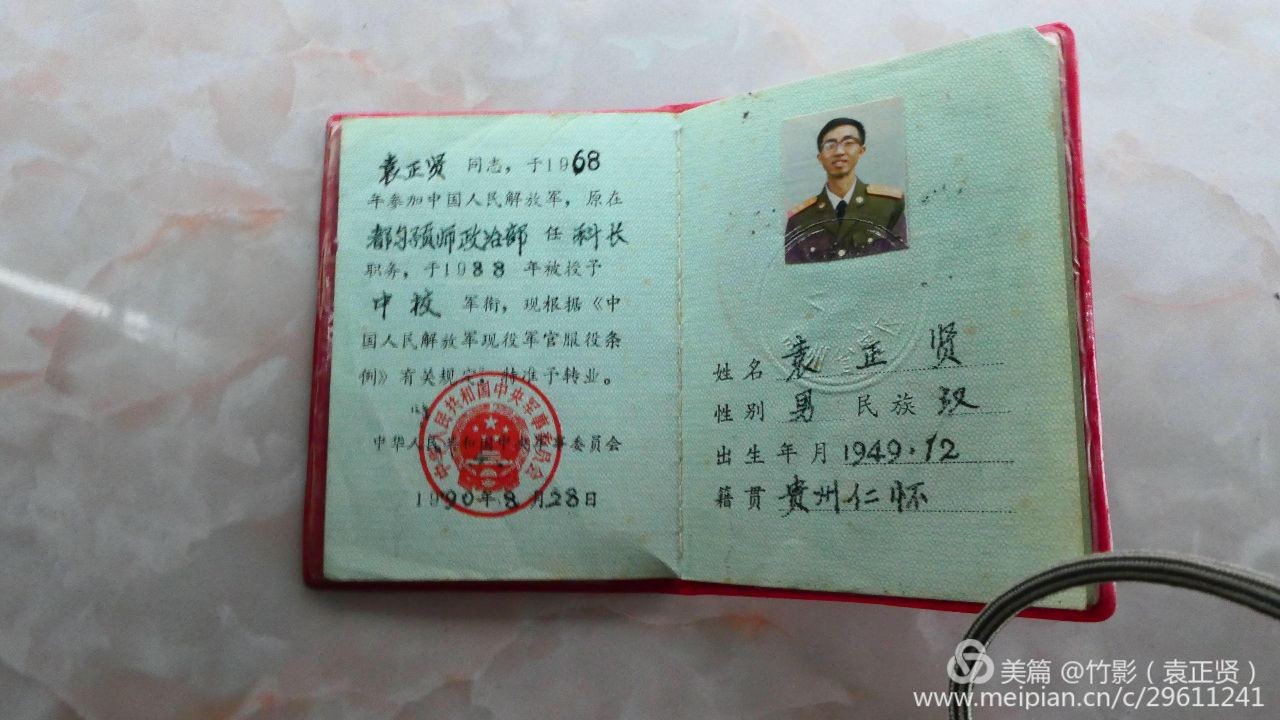 袁正贤 同志，于1968
年参加中国人民解放军，原在
都匀预师政治部 任 科长
职务，于1988 年被授予
中校 军衔，现根据《中
国人民解放军现役军官服役条
例》有关规定，特准予转业。
中华人民共和国中央军事委员会
中华人民共和国中央军事委员会
1990年8月28日
姓名 袁正贤
性别 男 民族 汉
出生年月 1949.12
籍贯 贵州仁怀
美篇 @竹影（袁正贤）
www.meipian.cn/c/29611241